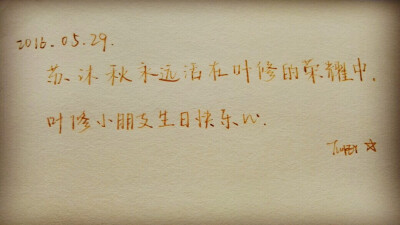 2016.05.29.
苏沐秋永远活在叶修的荣耀中.
叶修小朋友生日快乐心.